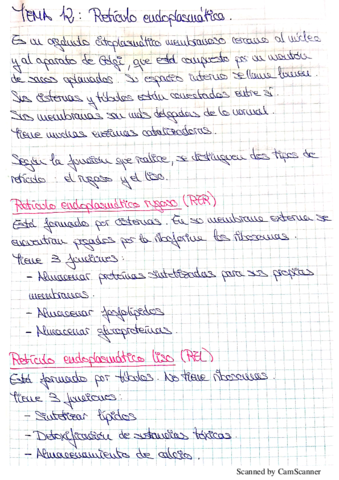 TEMA 12: Retículo endoplasmático.
Es un orgánulo citoplasmático membranoso cercano al núcleo
y al aparato de Golgi, que está compuesto por un montón
de sacos aplanados. Su espacio interno se llama lumen.
Sus cisternas y túbulos están conectadas entre sí.
Sus membranas son más delgadas de lo normal.
Tiene muchas enzimas catalizadoras.
Según la función que realice, se distinguen dos tipos de
retículo: el rugoso y el liso.
Retículo endoplasmático rugoso (RER)
Está formado por cisternas. En su membrana externa se
encuentran pegados por la riboforina los ribosomas.
Tiene 3 funciones:
- Almacenar proteínas sintetizadas para sus propias
membranas.
- Almacenar fosfolípidos
- Almacenar glucoproteínas.
Retículo endoplasmático liso (REL)
Está formado por túbulos. No tiene ribosomas.
Tiene 3 funciones:
- Sintetizar lípidos
- Detoxificación de sustancias tóxicas.
- Almacenamiento de calcio.
Scanned by CamScanner